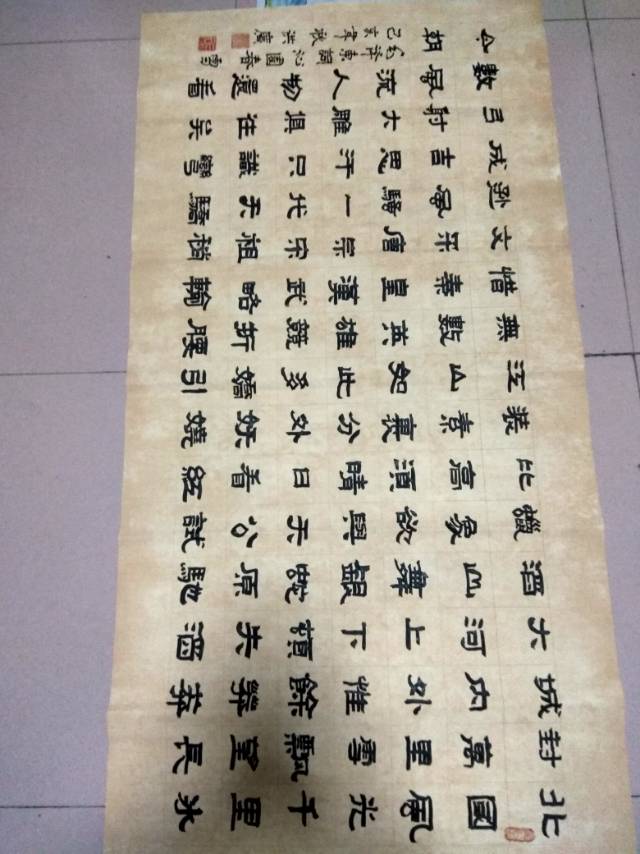 北國風光千里冰
封萬里雪飄望長
城內外惟餘莽莽
大河上下頓失滔
滔山舞銀蛇原馳
蠟象欲與天公試
比高須晴日看紅
裝素裹分外妖嬈
江山如此多嬌引
無數英雄競折腰
惜秦皇漢武略輸
文采唐宗宋祖稍
遜風騷一代天驕
成吉思汗只識彎
弓射大雕俱往矣
數風流人物還看
今朝
毛澤東詞沁園春雪
己亥年秋洪廣